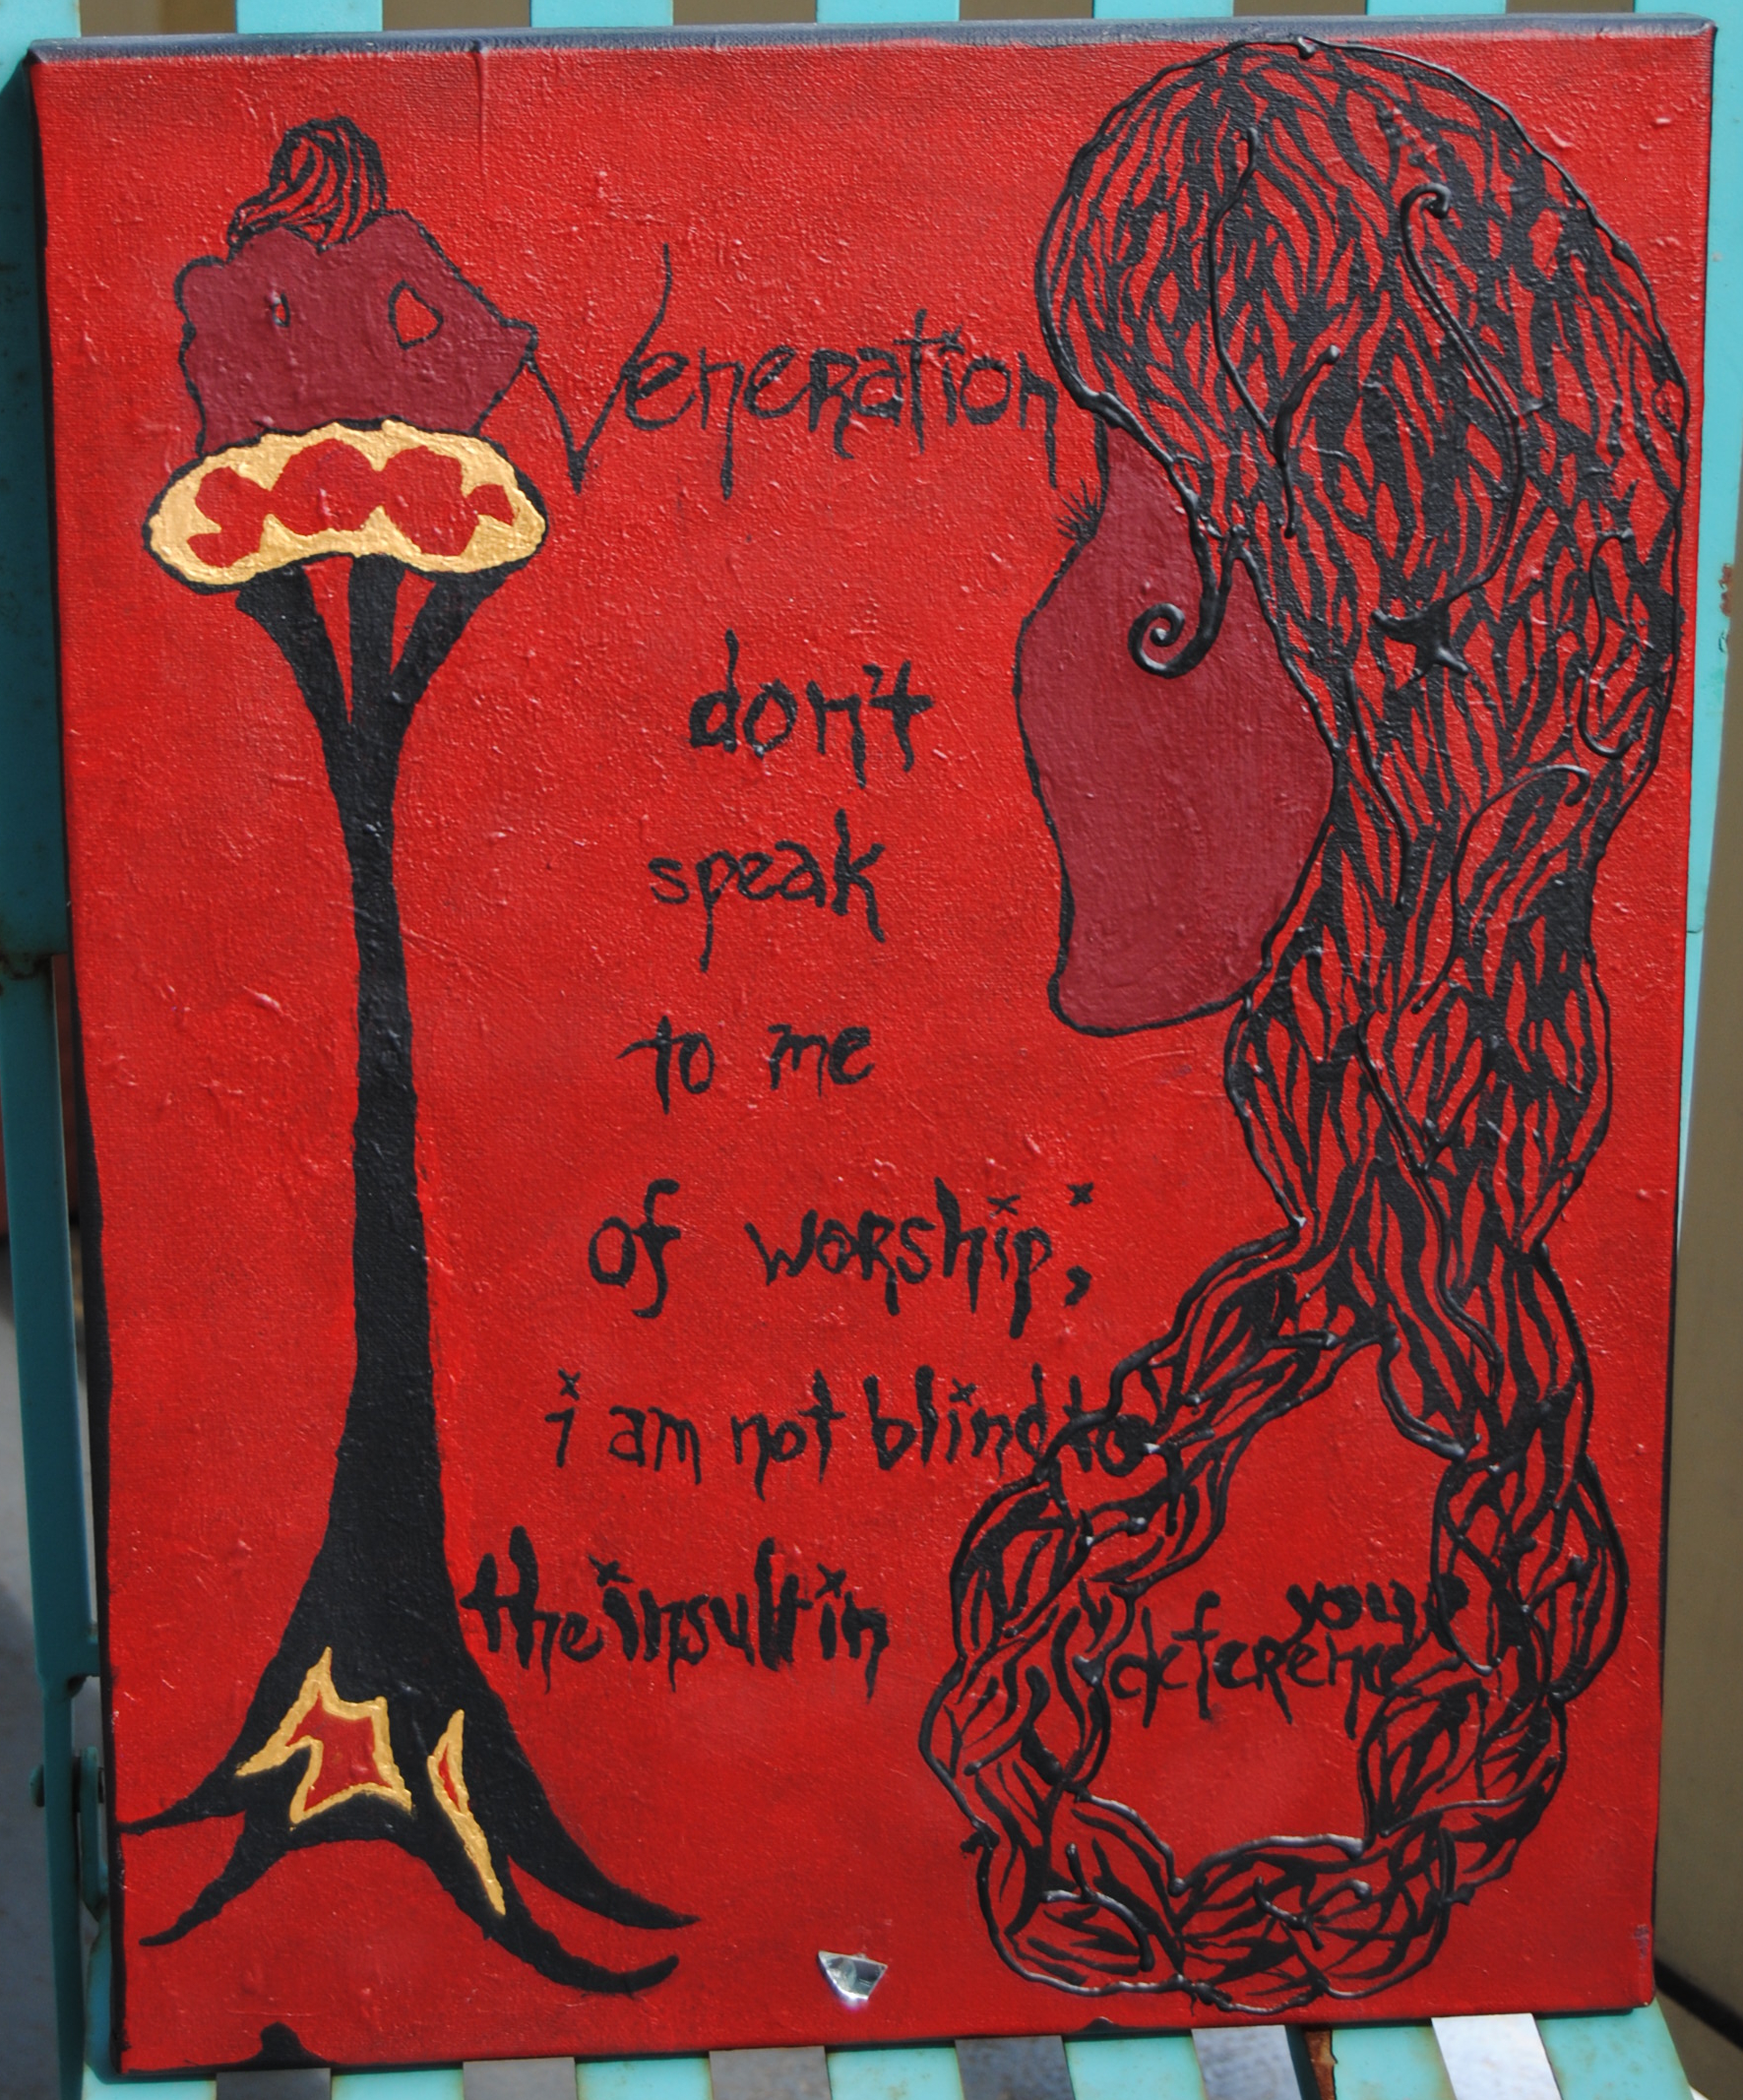 Veneration
don't
speak
to me
of worship;
i am not blind to
the insult in
your
deference